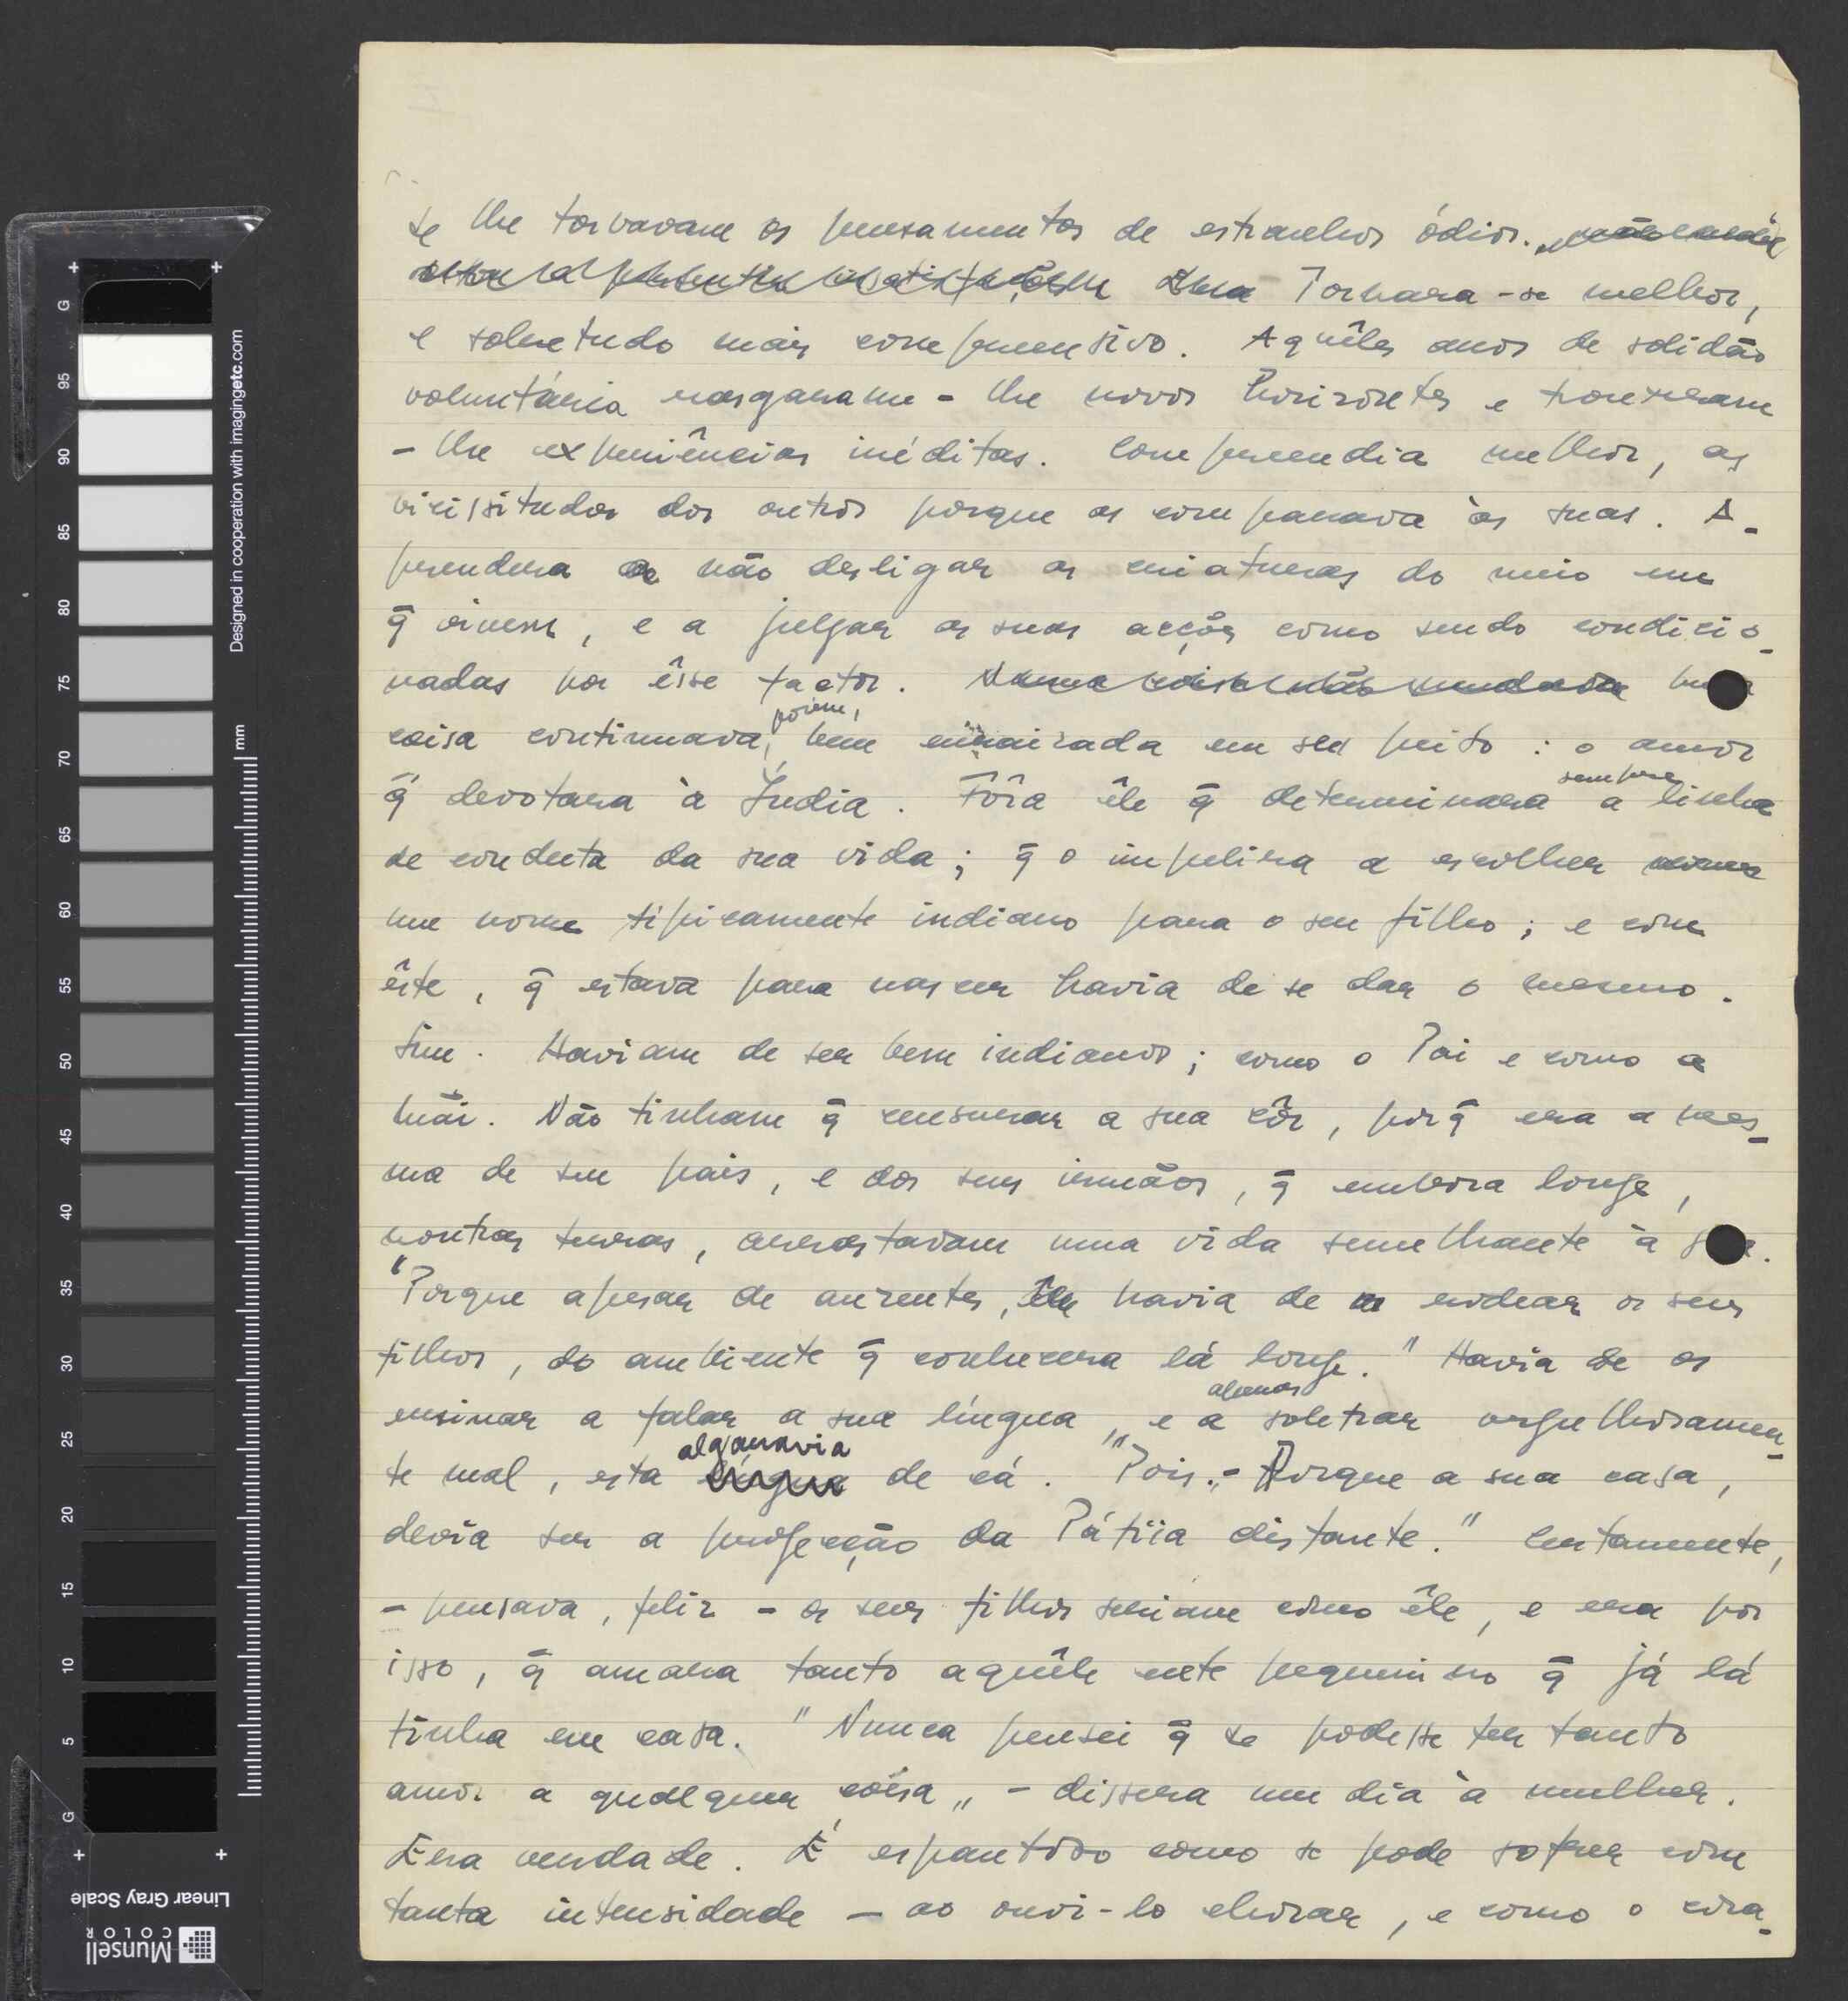 se lhe torvavam os pensamentos de estranhos ódios.
Tornara-se melhor,
e sobretudo mais compreensivo. Aquêles anos de solidão
voluntária rasgaram-lhe novos horizontes e trouxeram
-lhe experiências inéditas. Compreendia melhor, as
vicissitudes dos outros porque as comparava às suas. A-
prendera a não desligar as criaturas do meio em
q̄ vivem, e a julgar as suas acções como sendo condicio-
nadas por êsse factor.
coisa continuava, porém, bem enraizada em seu peito : o amor
q̄ devotara à Índia. Fôra êle q̄ determinara sempre a linha
de conduta da sua vida; q̄ o impelira a escolher
um nome tìpicamente indiano para o seu filho; e com
êste, q̄ estava para nascer havia de se dar o mesmo.
Sim. Haviam de ser bem indianos; como o Pai e como a
Mãi. Não tinham q̄ censurar a sua côr, porq̄ era a mes-
ma de seu pais, e dos seus irmãos, q̄ embora longe,
noutras terras, arrastavam uma vida semelhante à
"Porque apesar de ausentes, êle havia de rodear os seus
filhos, do ambiente q̄ conhecera lá longe." Havia de os
ensinar a falar a sua língua, e a apenas soletrar orgulhosamen-
te mal, esta algaravia de cá. "Pois. - Porque a sua casa,
devia ser a projecção da Pátria distante." Certamente,
- pensava, feliz - os seus filhos seriam como êle, e era por
isso, q̄ amara tanto aquêle ente pequenino q̄ já lá
tinha em casa. "Nunca pensei q̄ se podesse ter tanto
amor a qualquer coisa„ - dissera um dia à mulher.
Era verdade. É espantoso como se pode sofrer com
tanta intensidade - ao ouvi-lo chorar, e como o cora-
Designed in cooperation with imagingetc.com
mm
G
95
90
85
80
75
70
65
60
55
50
45
40
35
30
25
20
15
10
5
G
Linear Gray Scale
Munsell
COLOR